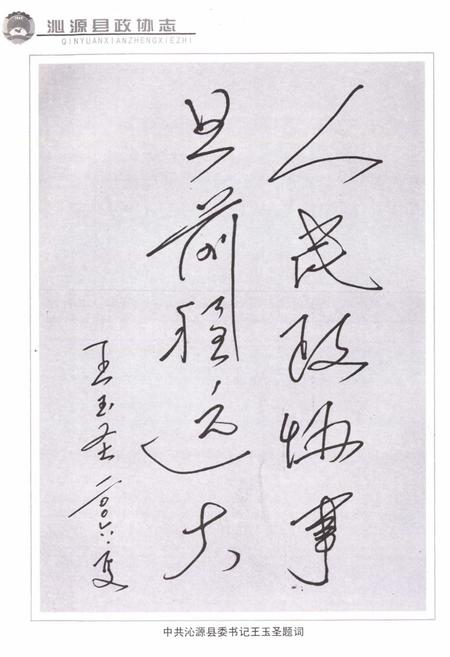 沁源县政协志
QINYUANXIANZHENGXIEZHI
人民政协事
业前程远大
王玉圣二〇〇六.夏
中共沁源县委书记王玉圣题词